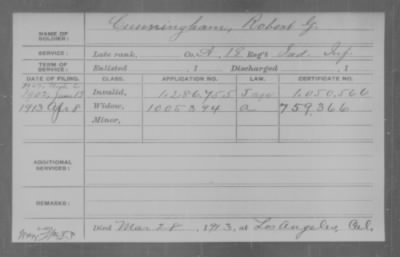 NAME OF SOLDIER: Cunningham, Robert G.
SERVICE: Late rank, Co. A, 18 Reg't Ind. Inf.
TERM OF SERVICE: Enlisted , 1 Discharged , 1
DATE OF FILING. CLASS. APPLICATION NO. LAW. CERTIFICATE NO.
1902 June 13 Invalid, 1286755 1,050,566
1913 Apr 8 Widow, 1005394 a 759,366
Minor,
ADDITIONAL SERVICES:
REMARKS:
Died Mar 28, 1913, at Los Angeles, Cal.